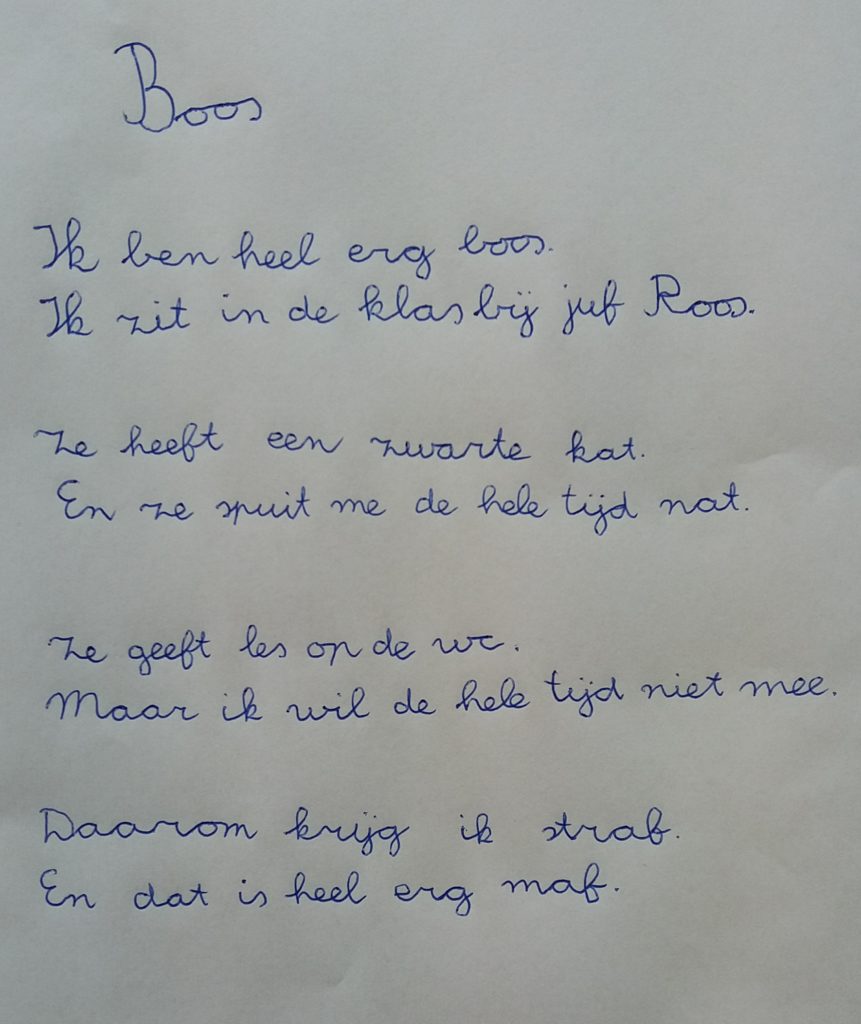 Boos
Ik ben heel erg boos.
Ik zit in de klas bij juf Roos.
Ze heeft een zwarte kat.
En ze spuit me de hele tijd nat.
Ze geeft les op de wc.
Maar ik wil de hele tijd niet mee.
Daarom krijg ik straf.
En dat is heel erg maf.